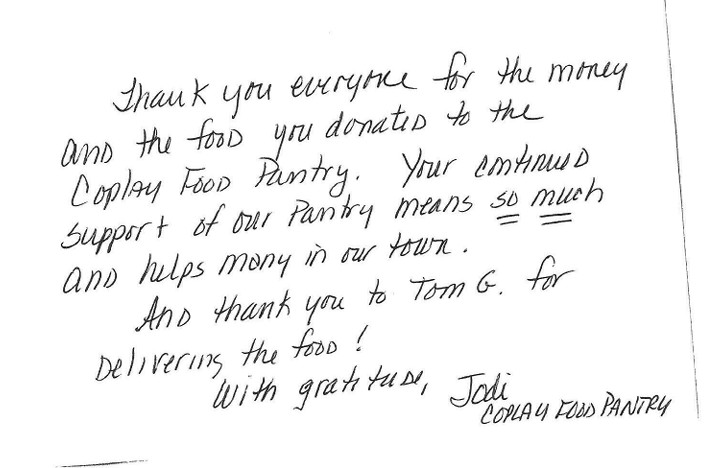 Thank you everyone for the money
and the food you donated to the
Coplay Food Pantry. Your continued
support of our Pantry means so much
and helps many in our town.
And thank you to Tom G. for
Delivering the food!
With gratitude, Jodi
COPLAY FOOD PANTRY